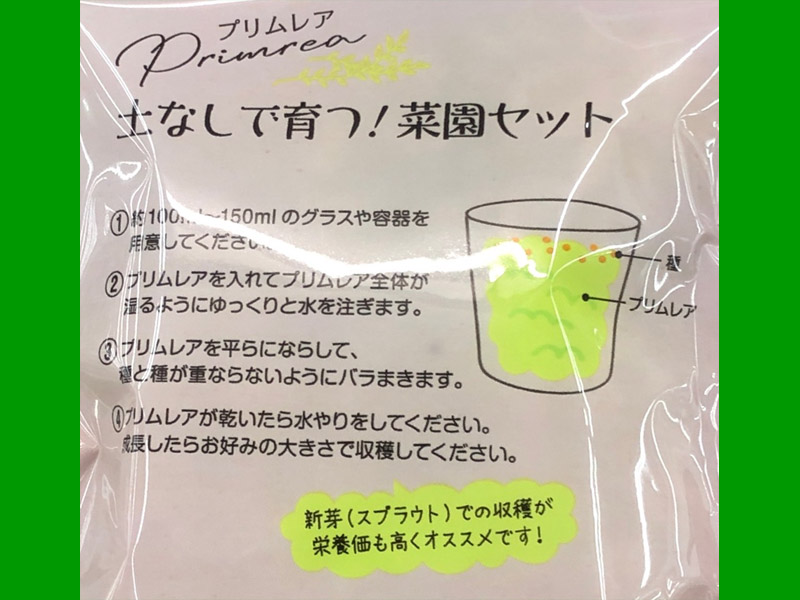 プリムレア
Primrea
土なしで育つ!菜園セット
①約100ml~150mlのグラスや容器を
用意してください。
②プリムレアを入れてプリムレア全体が
湿るようにゆっくりと水を注ぎます。
③プリムレアを平らにならして、
種と種が重ならないようにバラまきます。
④プリムレアが乾いたら水やりをしてください。
成長したらお好みの大きさで収穫してください。
種
プリムレア
新芽(スプラウト)での収穫が
栄養価も高くオススメです!